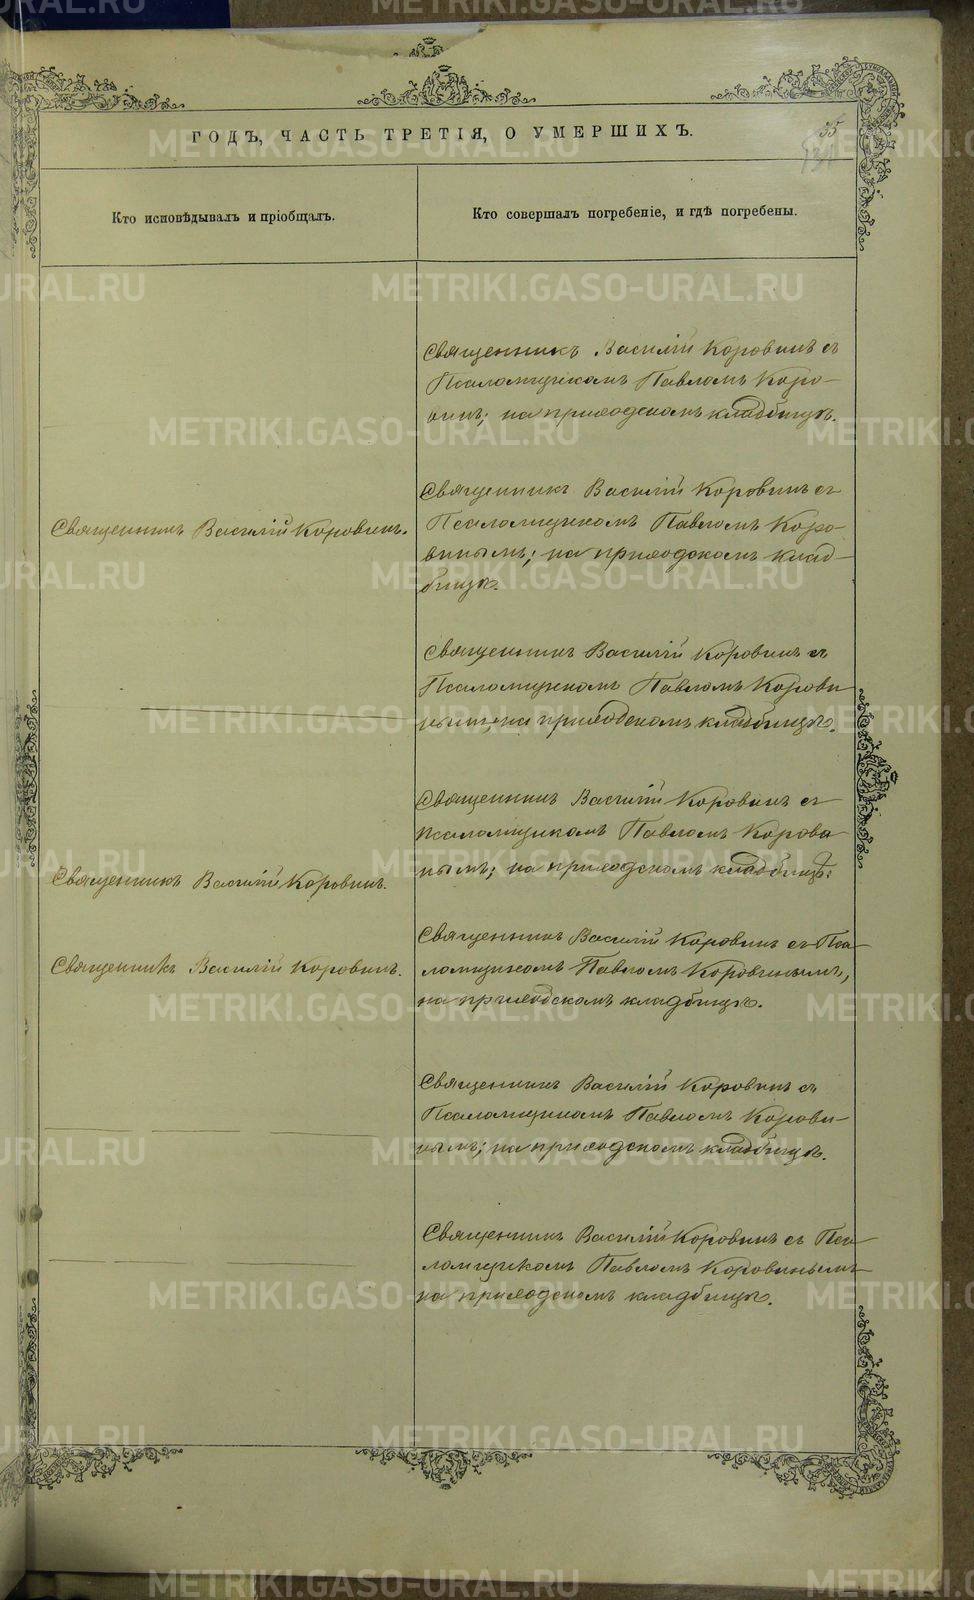 ГОДЪ, ЧАСТЬ ТРЕТІЯ, О УМЕРШИХЪ.
35
Кто исповѣдывалъ и пріобщалъ.
Кто совершалъ погребеніе, и гдѣ погребены.
Священникъ Василій Коровинъ съ
Псаломщикомъ Павломъ Коро-
винъ; на приходскомъ кладбищѣ.
Священникъ Василій Коровинъ.
Священникъ Василій Коровинъ съ
Псаломщикомъ Павломъ Коро-
винымъ; на приходскомъ клад-
бищѣ.
Священникъ Василій Коровинъ съ
Псаломщикомъ Павломъ Корови
нымъ; на приходскомъ кладбищѣ.
Священникъ Василій Коровинъ.
Священникъ Василій Коровинъ съ
Псаломщикомъ Павломъ Корови
нымъ; на приходскомъ кладбищѣ.
Священникъ Василій Коровинъ.
Священникъ Василій Коровинъ съ Пса-
ломщикомъ Павломъ Коровинымъ,
на приходскомъ кладбищѣ.
Священникъ Василій Коровинъ съ
Псаломщикомъ Павломъ Корови-
нымъ; на приходскомъ кладбищѣ.
Священникъ Василій Коровинъ съ Пса-
ломщикомъ Павломъ Коровинымъ
на приходскомъ кладбищѣ.
METRIKI.GASO-URAL.RU